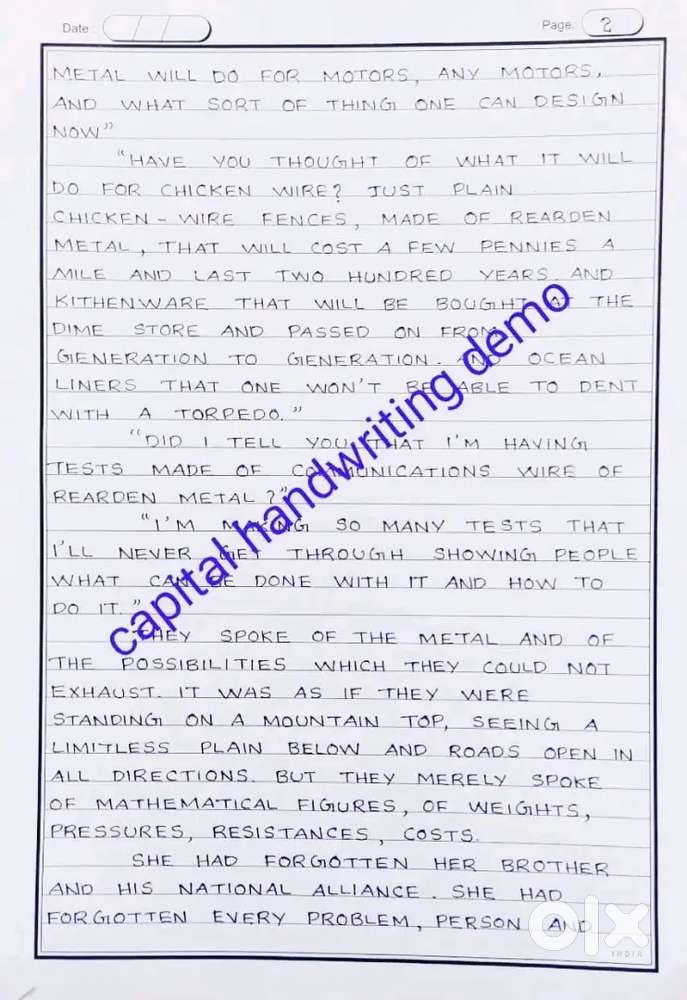 Date: / / Page. 2
METAL WILL DO FOR MOTORS, ANY MOTORS,
AND WHAT SORT OF THING ONE CAN DESIGN
NOW”
“HAVE YOU THOUGHT OF WHAT IT WILL
DO FOR CHICKEN WIRE? JUST PLAIN
CHICKEN-WIRE FENCES, MADE OF REARDEN
METAL, THAT WILL COST A FEW PENNIES A
MILE AND LAST TWO HUNDRED YEARS. AND
KITHENWARE THAT WILL BE BOUGHT AT THE
DIME STORE AND PASSED ON FROM
GENERATION TO GENERATION. AND OCEAN
LINERS THAT ONE WON'T BE ABLE TO DENT
WITH A TORPEDO.”
“DID I TELL YOU THAT I'M HAVING
TESTS MADE OF COMMUNICATIONS WIRE OF
REARDEN METAL?”
“I'M MAKING SO MANY TESTS THAT
I'LL NEVER GET THROUGH SHOWING PEOPLE
WHAT CAN BE DONE WITH IT AND HOW TO
DO IT.”
THEY SPOKE OF THE METAL AND OF
THE POSSIBILITIES WHICH THEY COULD NOT
EXHAUST. IT WAS AS IF THEY WERE
STANDING ON A MOUNTAIN TOP, SEEING A
LIMITLESS PLAIN BELOW AND ROADS OPEN IN
ALL DIRECTIONS. BUT THEY MERELY SPOKE
OF MATHEMATICAL FIGURES, OF WEIGHTS,
PRESSURES, RESISTANCES, COSTS.
SHE HAD FORGOTTEN HER BROTHER
AND HIS NATIONAL ALLIANCE. SHE HAD
FORGOTTEN EVERY PROBLEM, PERSON AND
capital handwriting demo
olx
INDIA